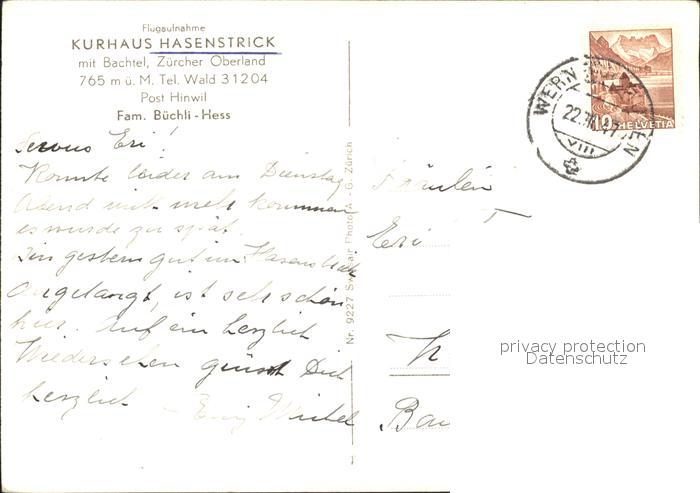 Flugaufnahme
KURHAUS HASENSTRICK
mit Bachtel, Zürcher Oberland
765 m ü. M. Tel. Wald 31204
Post Hinwil
Fam. Büchli-Hess
Servus Eri!
Konnte leider am Dienstag
Abend nicht mehr kommen
es wurde zu spät.
Bin gestern gut im Hasenstrick
angelangt, ist sehr schön
hier. Auf ein herzlich
Wiedersehen grüsst Dich
herzlich
Fräulein
Eri
Nr. 9227 Photo A.-G. Zürich
10 HELVETIA
22. 47
VIII
privacy protection
Datenschutz